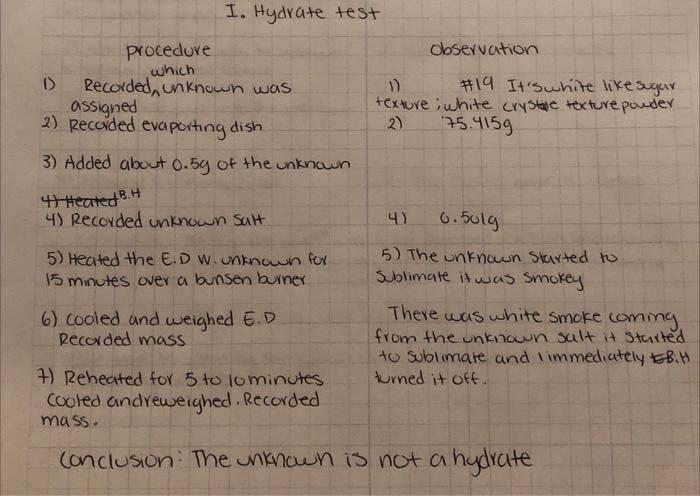 I. Hydrate test
procedure
observation
1) Recorded which unknown was
assigned
1) #19 It's white like sugar
texture; white crystale texture powder
2) Recorded evaporting dish
2) 75.415g
3) Added about 0.5g of the unknown
4) Heated B.H
4) Recorded unknown salt
4) 0.501g
5) Heated the E.D w. unknown for
15 minutes over a bunsen burner
5) The unknown started to
sublimate it was smokey
6) cooled and weighed E.D
Recorded mass
There was white smoke coming
from the unknown salt it started
to sublimate and I immediately B.H
turned it off.
7) Reheated for 5 to 10 minutes
Cooled and reweighed. Recorded
mass.
Conclusion: The unknown is not a hydrate